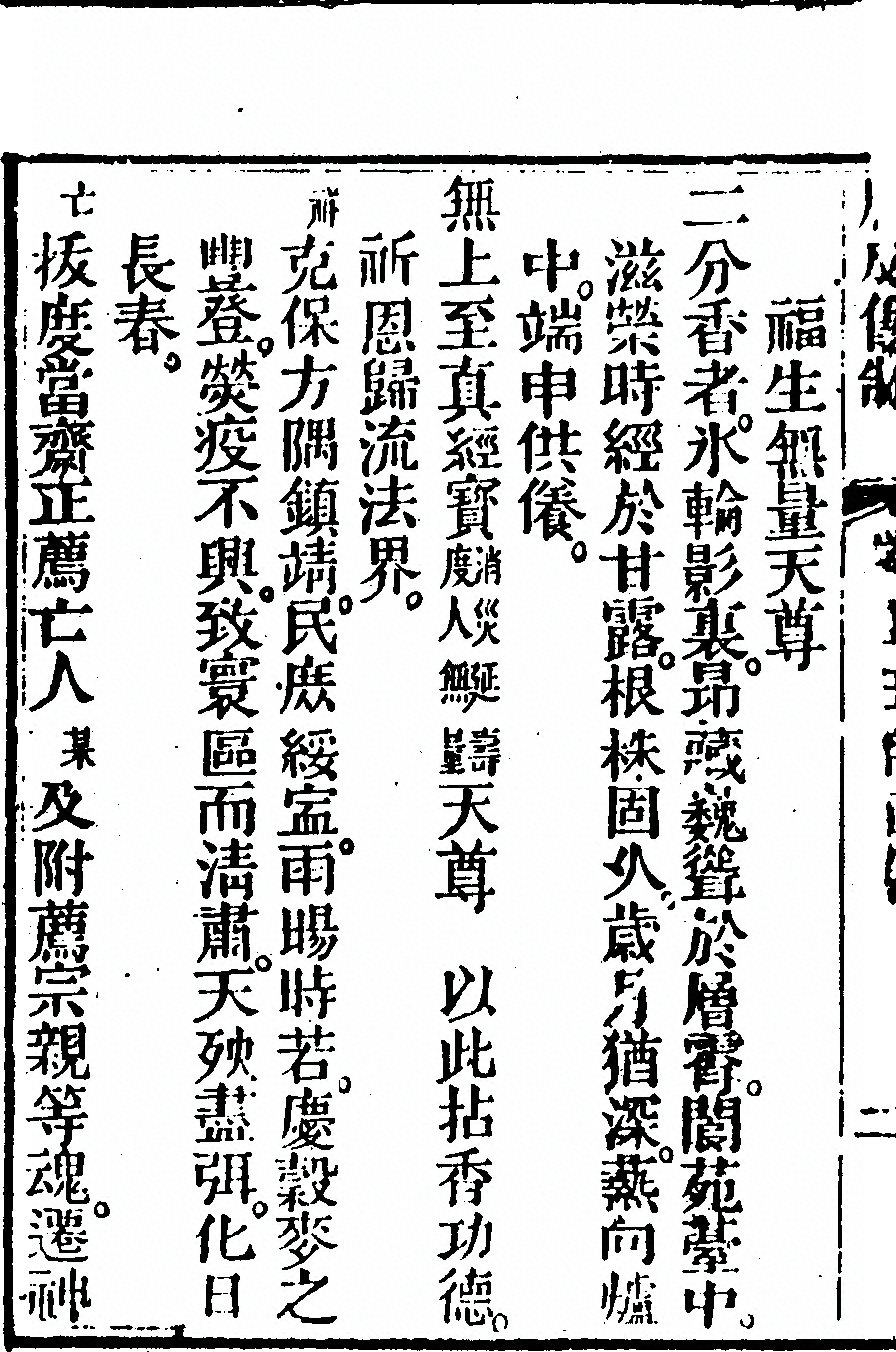 福生無量天尊
二分香者。氷輪影裏。昻藏巍聳於層霄。閬苑䑓中。
滋榮時經於甘露。根株固久。歲月猶深。爇向爐
中。端申供養。
無上至真經寶消災延壽度人無量天尊　以此拈香功德。
祈恩歸流法界。
祈克保方隅鎮靖。民庶綏寍。雨暘時若。慶穀麥之
豐登。熒疫不興。致寰區而清肅。天殃盡弭。化日
長春。
亡拔度當齋正薦亡人某及附薦宗親等魂。遷神